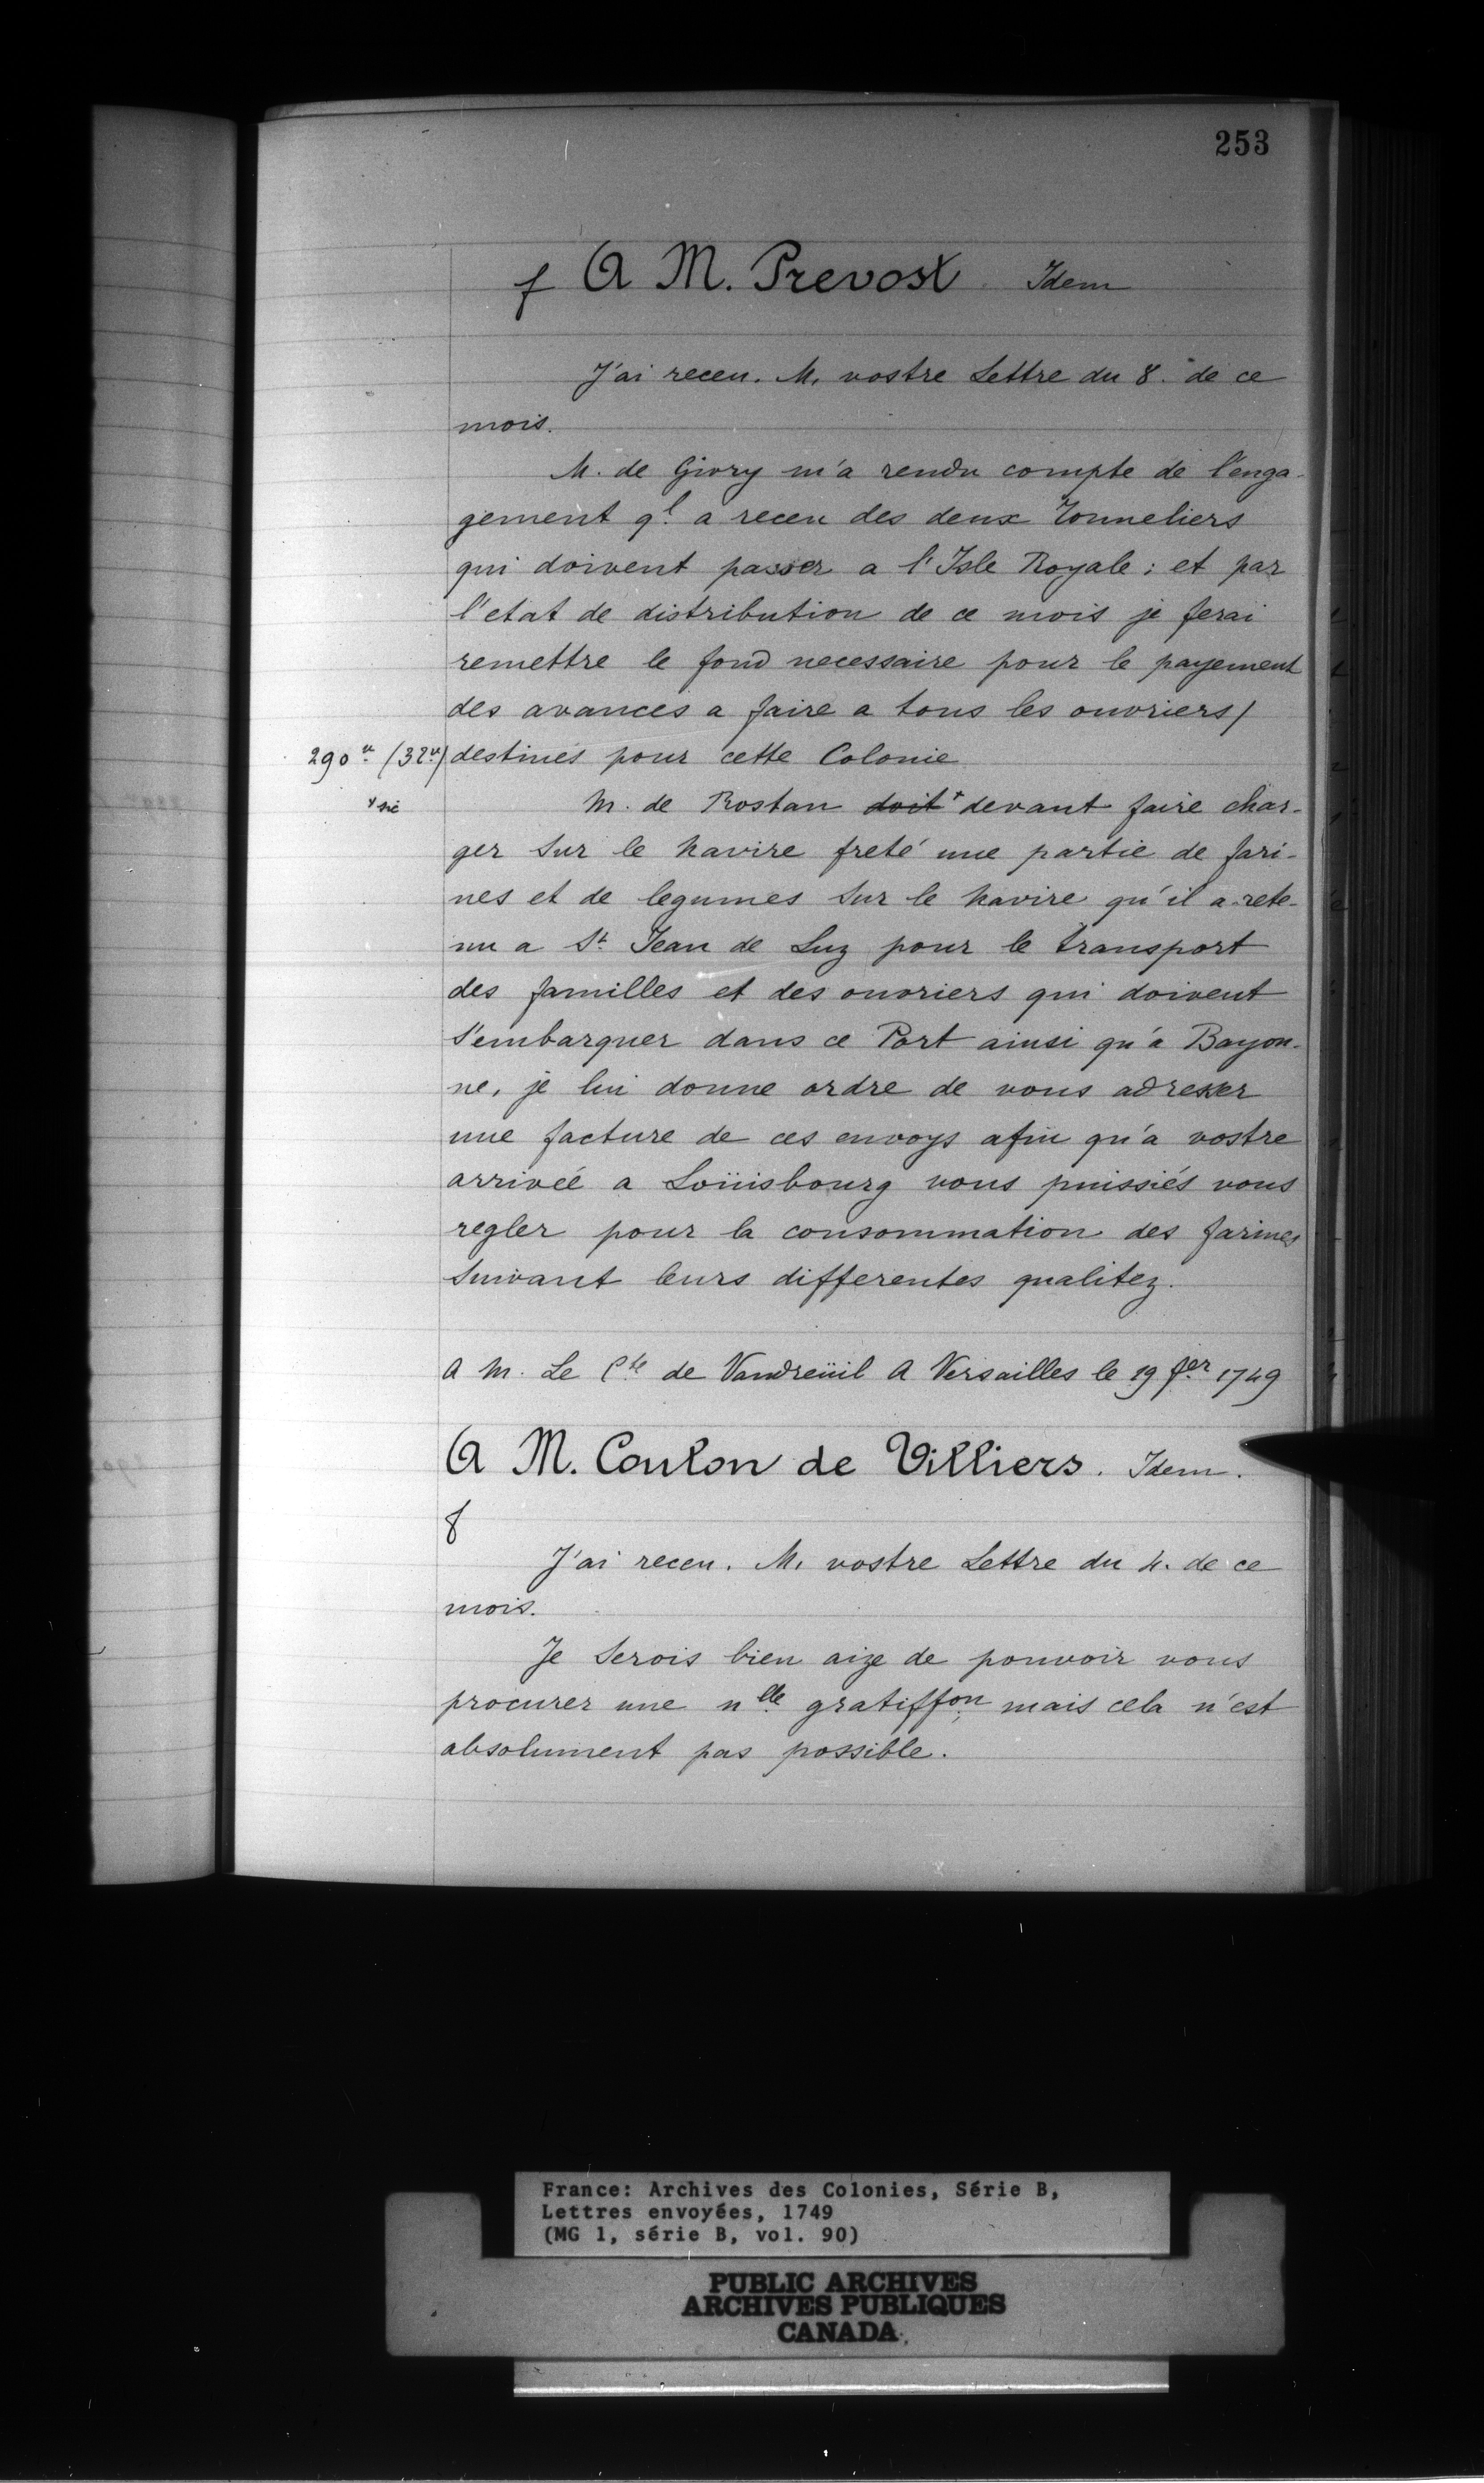 253
f A M. Prevost Idem
J'ai receu. M. vostre Lettre du 8. de ce
mois.
M. de Givry m'a rendu compte de l'enga-
gement ql. a receu des deux Tonneliers
qui doivent passer a l'Isle Royale; et par
l'etat de distribution de ce mois je ferai
remettre le fond necessaire pour le payement
des avances a faire a tous les ouvriers/
290v. (32v.) destinés pour cette Colonie
+ sic M. de Rostan doit + devant faire char-
ger sur le navire freté une partie de fari-
nes et de legumes sur le navire qu'il a rete-
nu a St. Jean de Luz pour le transport
des familles et des ouvriers qui doivent
s'embarquer dans ce Port ainsi qu'a Bayon-
ne, je lui donne ordre de vous adresser
une facture de ces envoys afin qu'a vostre
arriveé a Loüisbourg vous puissiés vous
regler pour la consommation des farines
suivant leurs differentes qualitez.
A M. Le Cte de Vaudreüil A Versailles le 19 fer 1749
A M. Coulon de Villiers. Idem.
f
J'ai receu. M. vostre Lettre du 4. de ce
mois.
Je serois bien aize de pouvoir vous
procurer une nlle gratiffon. mais cela n'est
absolument pas possible.
France: Archives des Colonies, Série B,
Lettres envoyées, 1749
(MG 1, série B, vol. 90)
PUBLIC ARCHIVES
ARCHIVES PUBLIQUES
CANADA